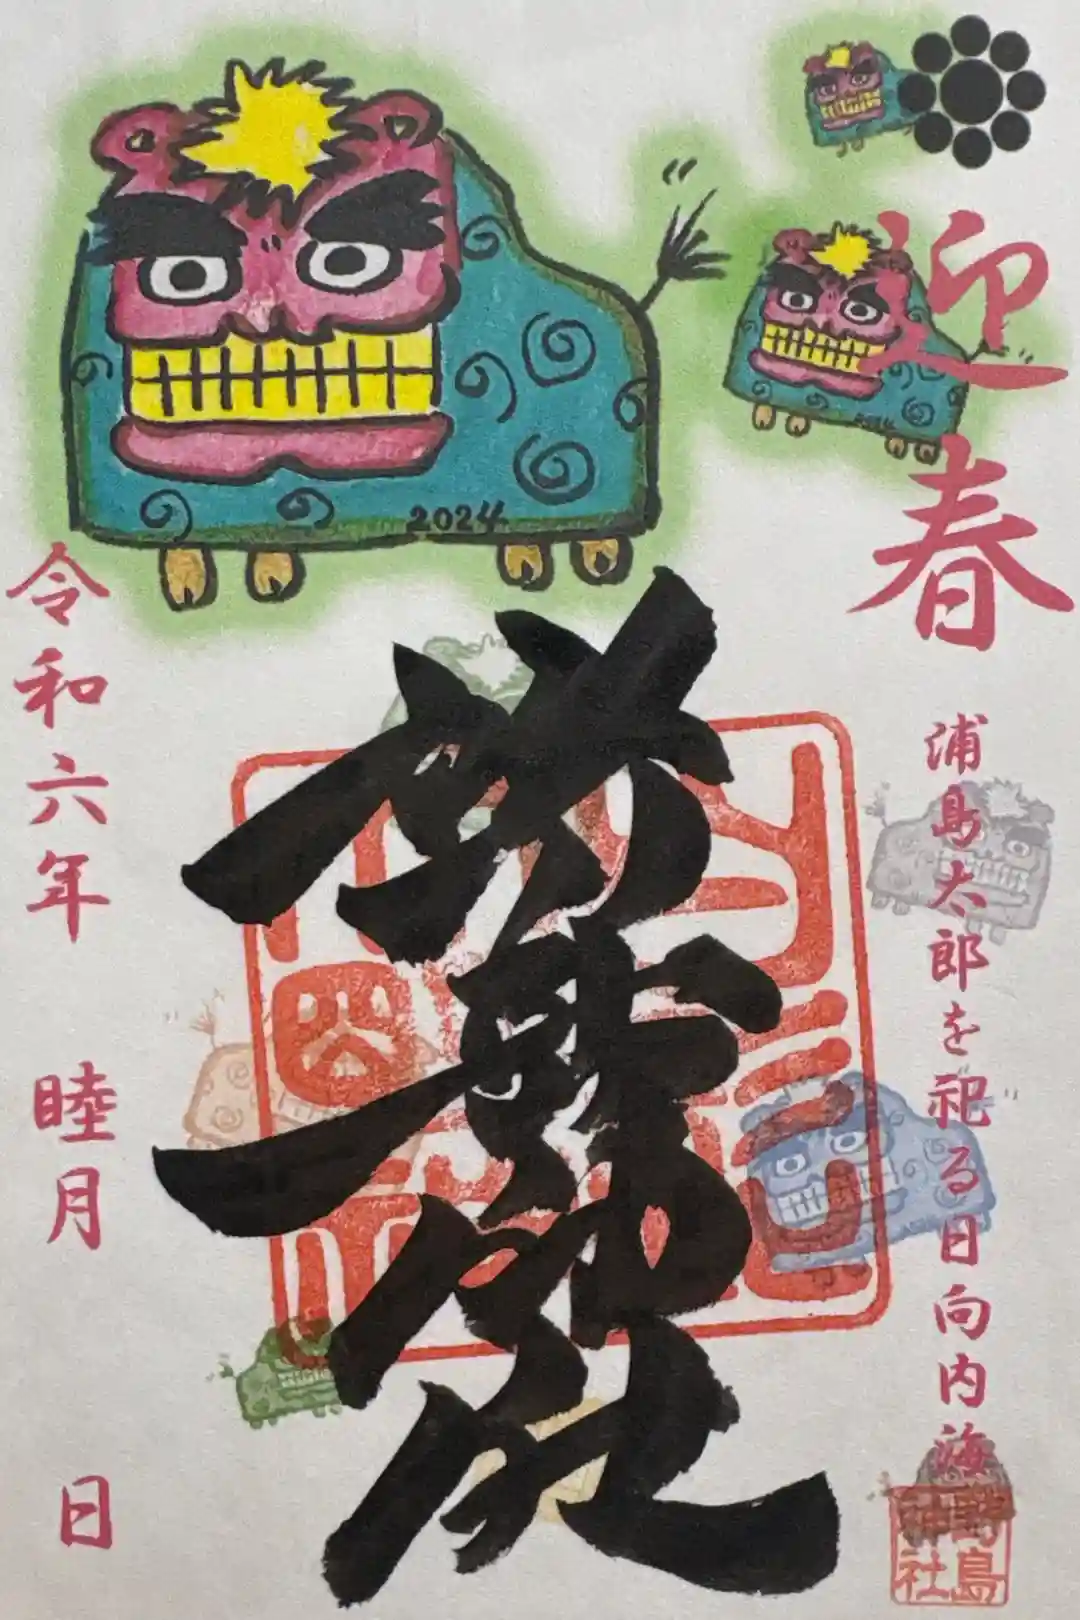 迎春
浦島太郎を祀る日向内海
野島
神社
2024
令和六年 睦月 日